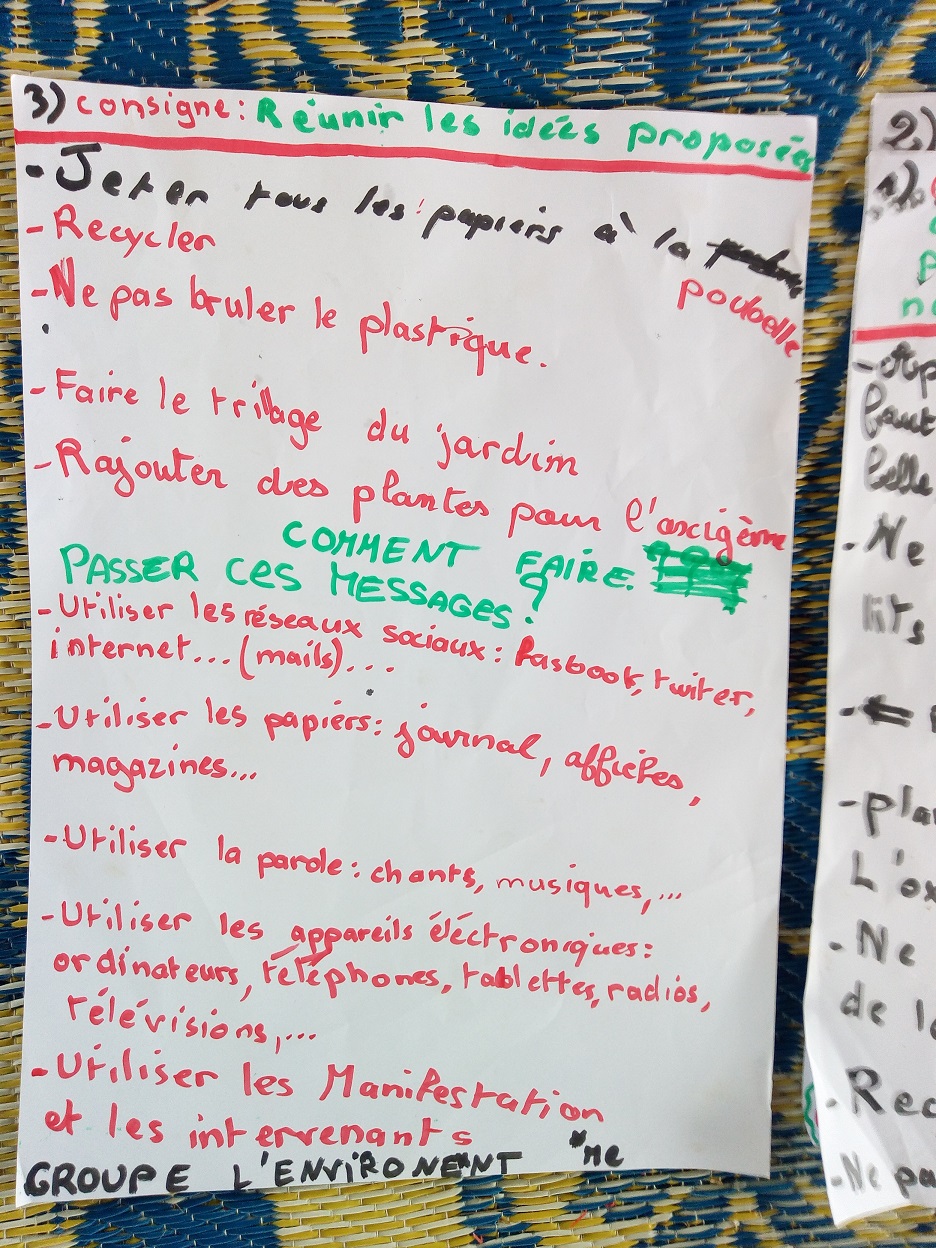 3) consigne: Réunir les idées proposées
- Jeter tous les papiers à la
poubelle
- Recycler
- Ne pas bruler le plastique.
- Faire le trillage du jardin
- Rajouter des plantes pour l'oxcigème
COMMENT FAIRE
PASSER CES MESSAGES ?
- Utiliser les réseaux sociaux : fasbook, twiter,
internet... (mails)...
- Utiliser les papiers : journal, affiches,
magazines...
- Utiliser la parole : chants, musiques,...
- Utiliser les appareils éléctroniques :
ordinateurs, téléphones, tablettes, radios,
télévisions,...
- Utiliser les Manifestation
et les intervenants
GROUPE L'ENVIRONEMENT
2)
1)
Ne
L'ox
- Ne
de l
Rec
- Ne pa